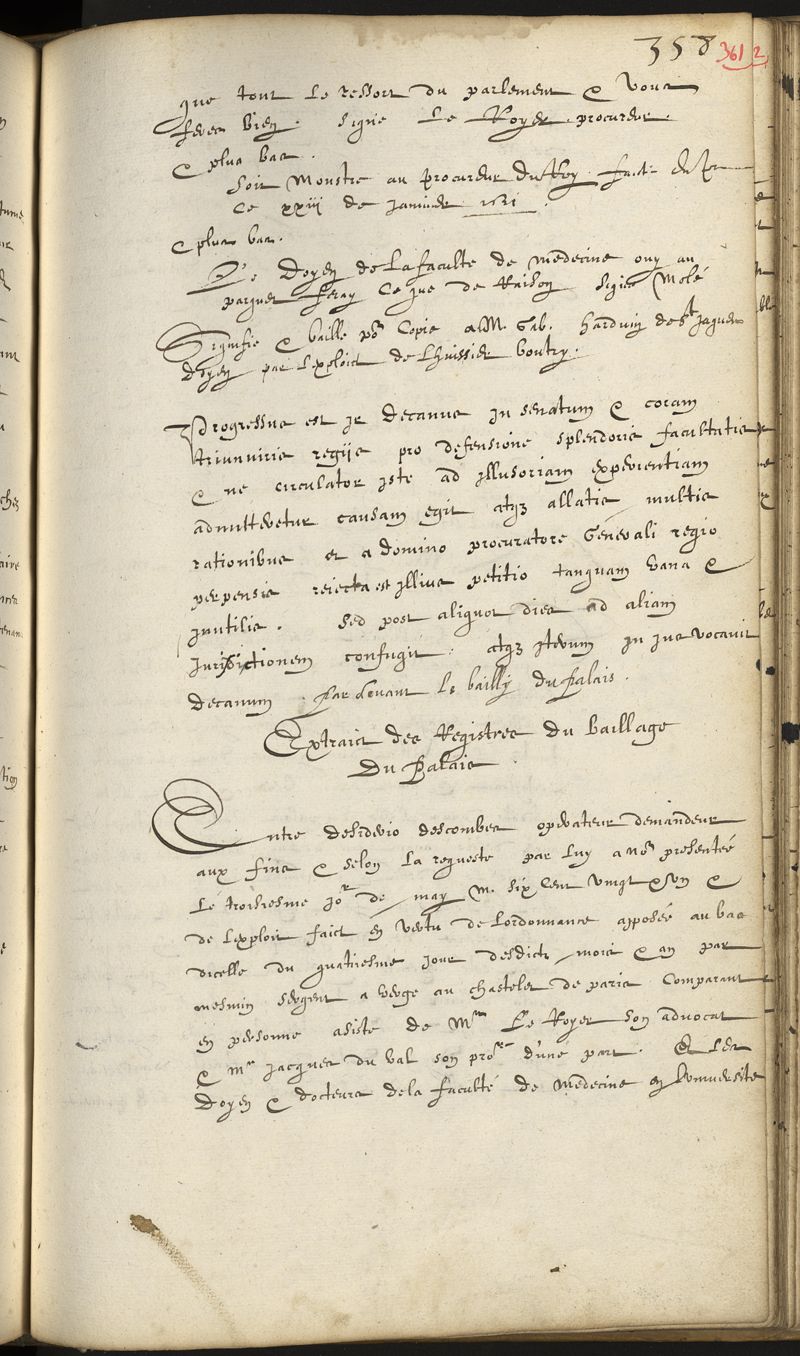 358 361 2
que tout le ressort du parlement & vous
ferez bien. Signé Le Royer procureur.
& plus bas.
Soit Monstré au procureur du Roy. faict
ce xxiij de Janvier 1621.
& plus bas.
Le Doyen de La faculté de medecine ouy au
parquet feray ce que de Raison Signé Molé
Signifié & baillé pn Copie a M. Gab. Harduin de St Jaques
Doyen par L'exploict de Lhuissier boutry.
Progressus est is decanus in senatum & coram
triumviris regijs pro defensione splendoris facultatis
& ne circulator iste ad illusoriam experientiam
admitteretur causam egit atqz allatis multis
rationibus et a domino procuratore Generali regio
perpensis reiecta est illius petitio tanquam vana &
inutilis. Sed post aliquot dies ad aliam
Jurisdictionem confugit. atqz iterum in jus vocavit
decanum. Par devant le bailly du Palais.
Extraict des Registres du baillage
Du Palais.
Entre desiderio descombes operateur demandeur
aux fins & selon La requeste par luy a nos presenteé
Le troisiesme jor de may M. six Cent vingt & un &
de Lexploit faict en vertu de Lordonnance apposeé au bas
dicelle du quatriesme jour desdicts mois & an par
mesmin sergent a verge au chastelet de paris Comparant
en personne asisté de Mre Le Royer son advocat
& Mre Jacques du val son procr d'une part. Et Les
Doyen & docteurs dela faculté de Medecine en Luniversité